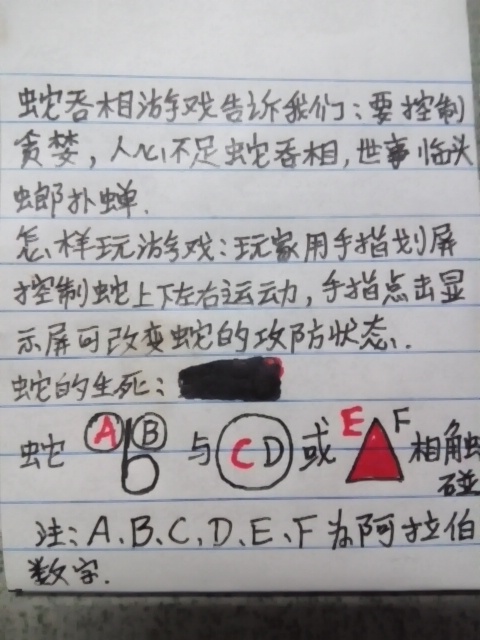 蛇吞相游戏告诉我们：要控制
贪婪，人心不足蛇吞相，世事临头
螂扑蝉.
怎样玩游戏：玩家用手指划屏
控制蛇上下左右运动，手指点击显
示屏可改变蛇的攻防状态.
蛇的生死：
蛇 A B 与 C D 或 E F 相触
碰
注：A、B、C、D、E、F 为阿拉伯
数字.